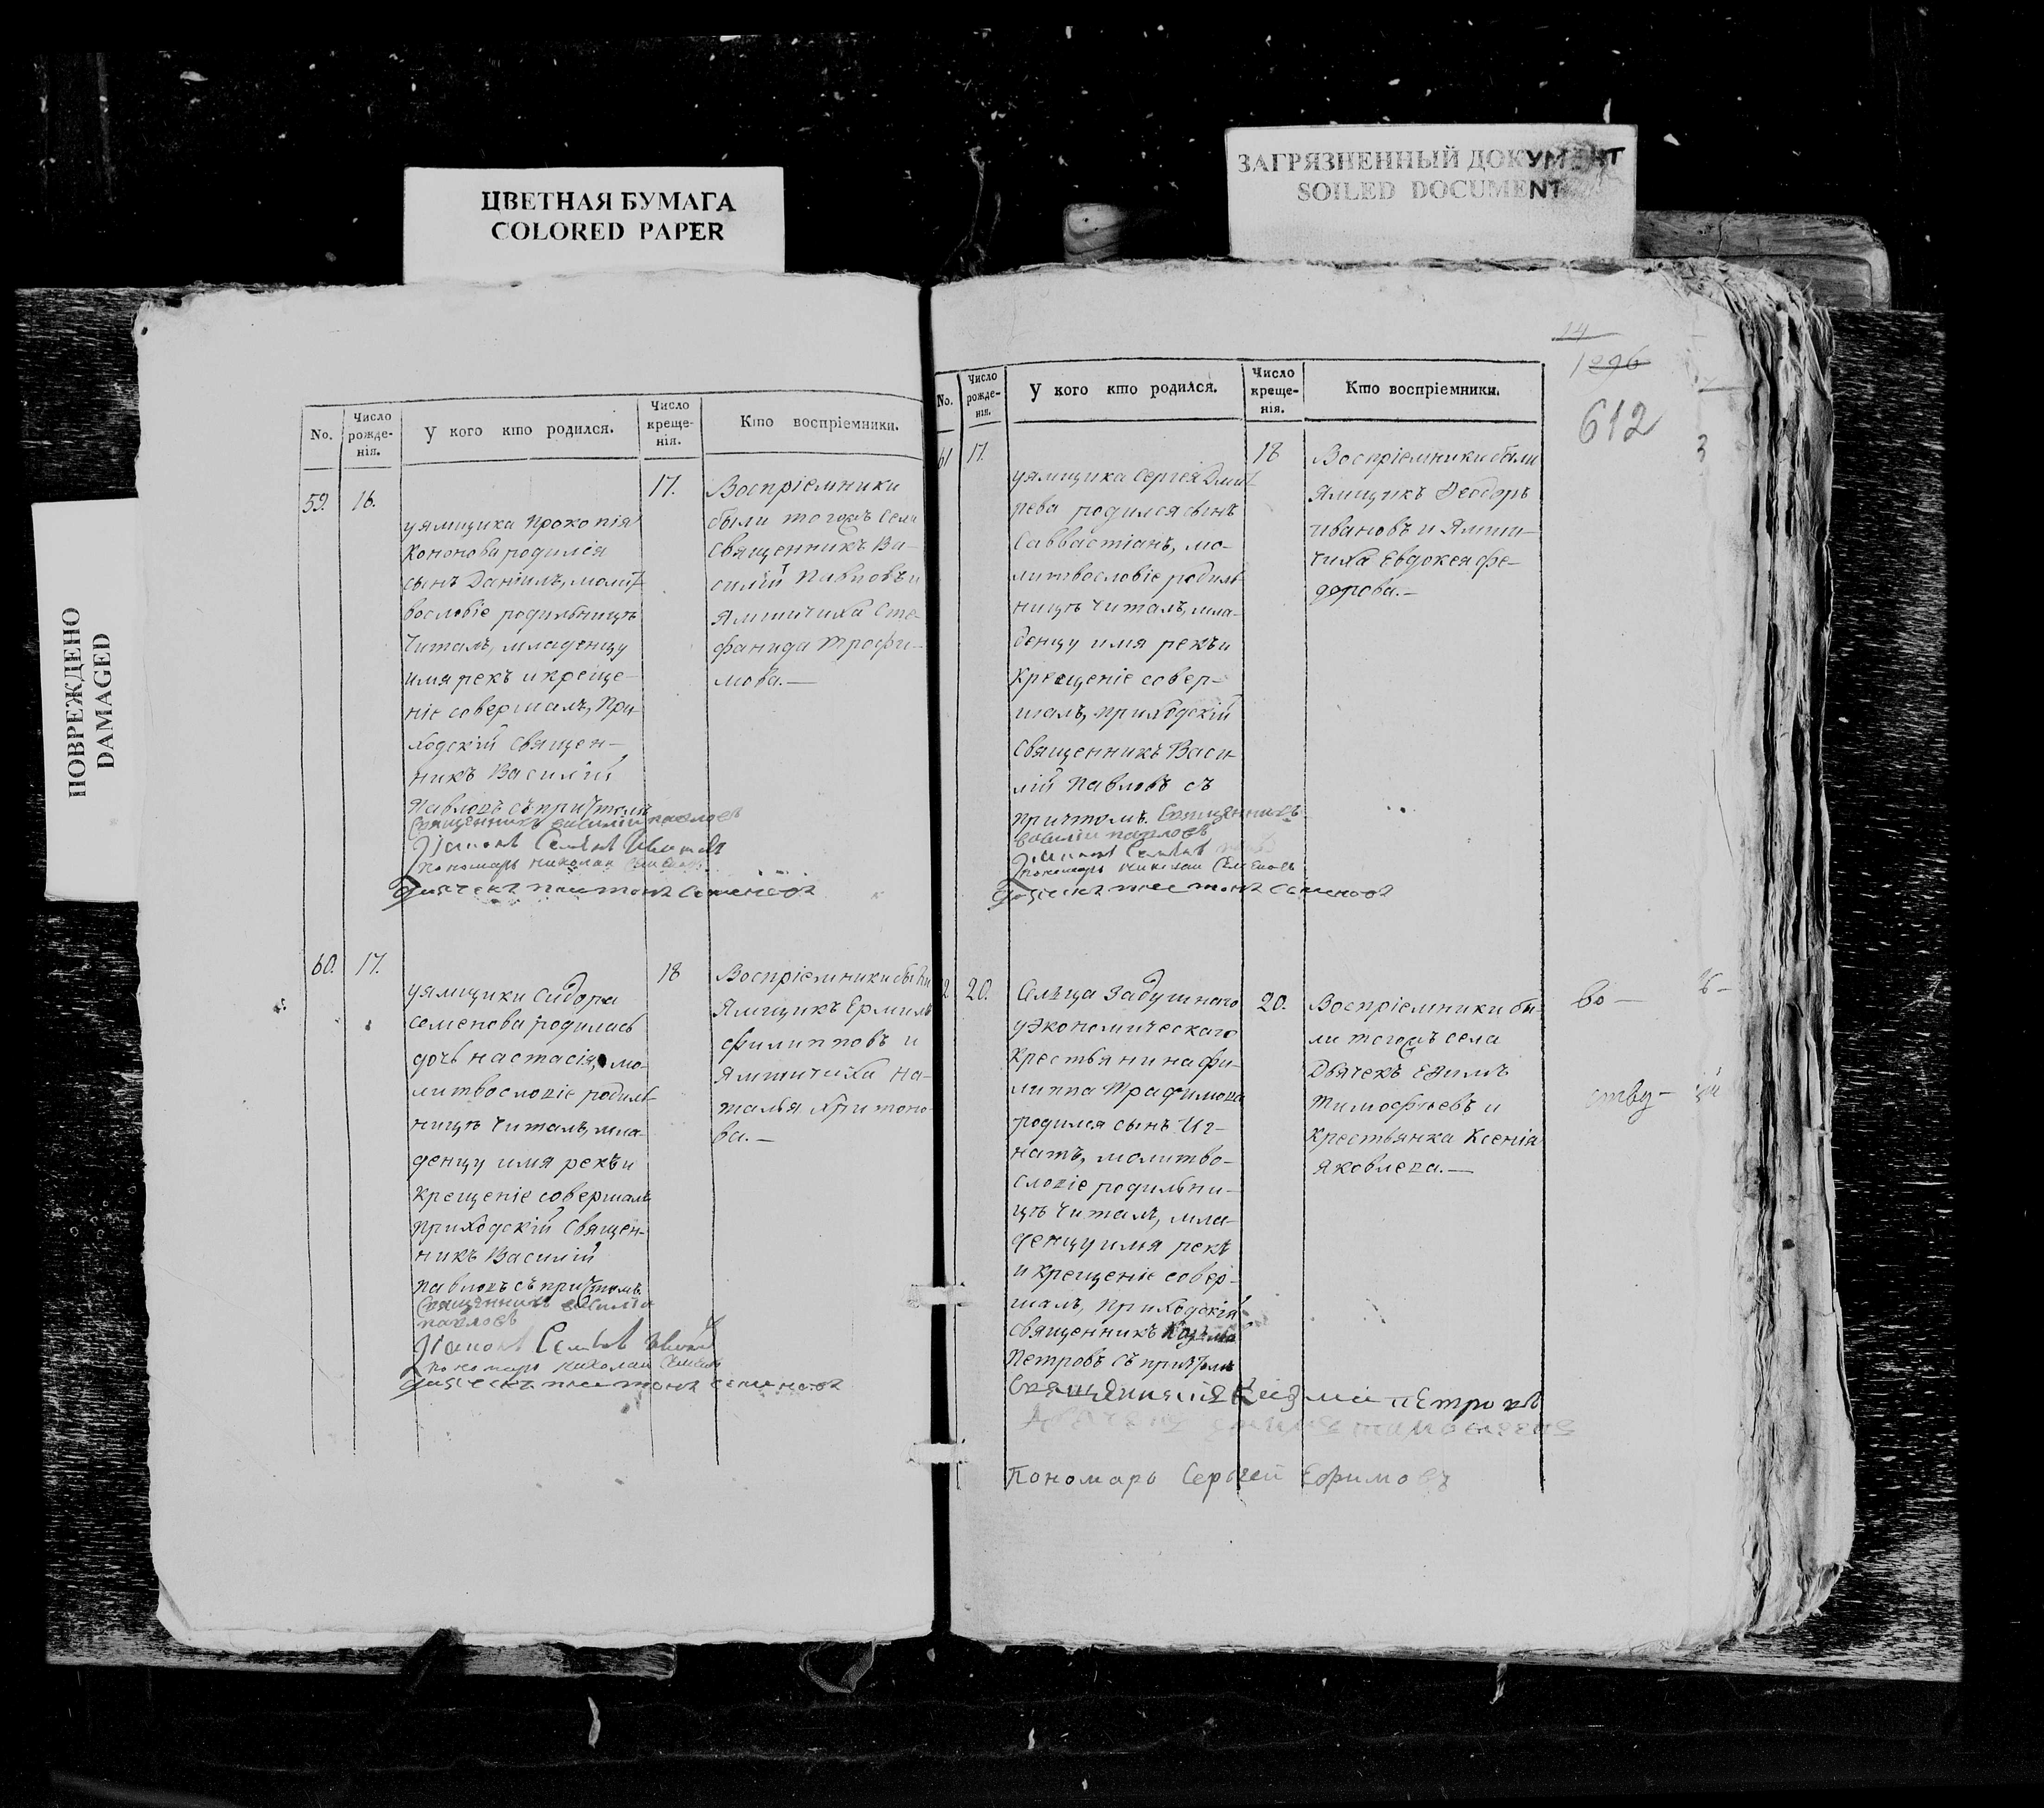 ЦВЕТНАЯ БУМАГА
COLORED PAPER
ЗАГРЯЗНЕННЫЙ ДОКУМЕНТ
SOILED DOCUMENT
ПОВРЕЖДЕНО
DAMAGED
No.
Число рожде-нія.
У кого кто родился.
Число креще-нія.
Кто воспріемники.
59. 16.
17.
уямщика Прокопія
Кононова родился
сынъ Даніилъ, молит
вословіе родильницѣ
Читалъ, младенцу
имя рекъ и креще-
ніе совершалъ, При-
ходскій Священ-
никъ Василій
Павловъ съ причтомъ
Священникъ василій павловъ
Диаконъ Семенъ Ивановъ
Пономарь николаи
дьячекъ Семеновъ
Воспріемники
были тогожъ Села
Священникъ Ва-
силій Павловъ и
Ямщичиха Сте-
фанида Трофи-
мова.—
60. 17.
18
уямщика Сидора
Семенова родилась
дочь настасія, мо-
литвословіе родиль-
ницѣ Читалъ, мла-
денцу имя рекъ и
Крещеніе совершалъ
приходскій Священ-
никъ Василій
павловъ съ причтомъ.
Священникъ василіи
павловъ
Диаконъ Семенъ
Пономарь николаи
дьячекъ семеновъ
Воспріемники были
Ямщикъ Ермилъ
филипповъ и
Ямщичиха На-
талья Харитоно-
ва.—
14
1296
612
3
No.
Число рожде-нія.
У кого кто родился.
Число креще-нія.
Кто воспріемники.
61 17.
18
уямщика Сергея Дмит
рева родился сынъ
Саввастіанъ, мо-
литвословіе родиль
ницѣ Читалъ, мла-
денцу имя рекъ и
Крещеніе совер-
шалъ, приходскій
Священникъ Васи-
лій Павловъ съ
причтомъ. Священникъ
василіи павловъ
Диаконъ Семенъ
Пономарь николаи Семеновъ
дьячекъ Семеновъ
Воспріемники были
Ямщикъ Ѳеодоръ
ивановъ и Ямщи-
чиха Евдокея фе-
дорова.—
2 20.
20.
Сельца Задушного
уэкономическаго
Крестьянина фи-
липпа Трафимова
родился сынъ Иг-
натъ, молитво-
словіе родильни-
цѣ Читалъ, мла-
денцу имя рекъ
и Крещеніе совер-
шалъ, приходскій
Священникъ Козьма
Петровъ съ причтомъ
петровъ
Пономарь Сергей Ефимовъ
Воспріемники бы-
ли тогожъ села
Дьячекъ Ефимъ
Тимофѣевъ и
Крестьянка Ксенія
Яковлева.—
во —
ъ —
ству —